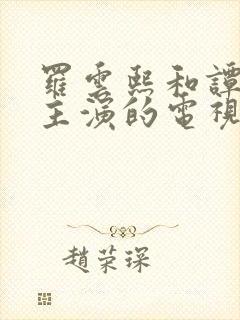 羅雲熙和譚
主演的電視
趙榮琛